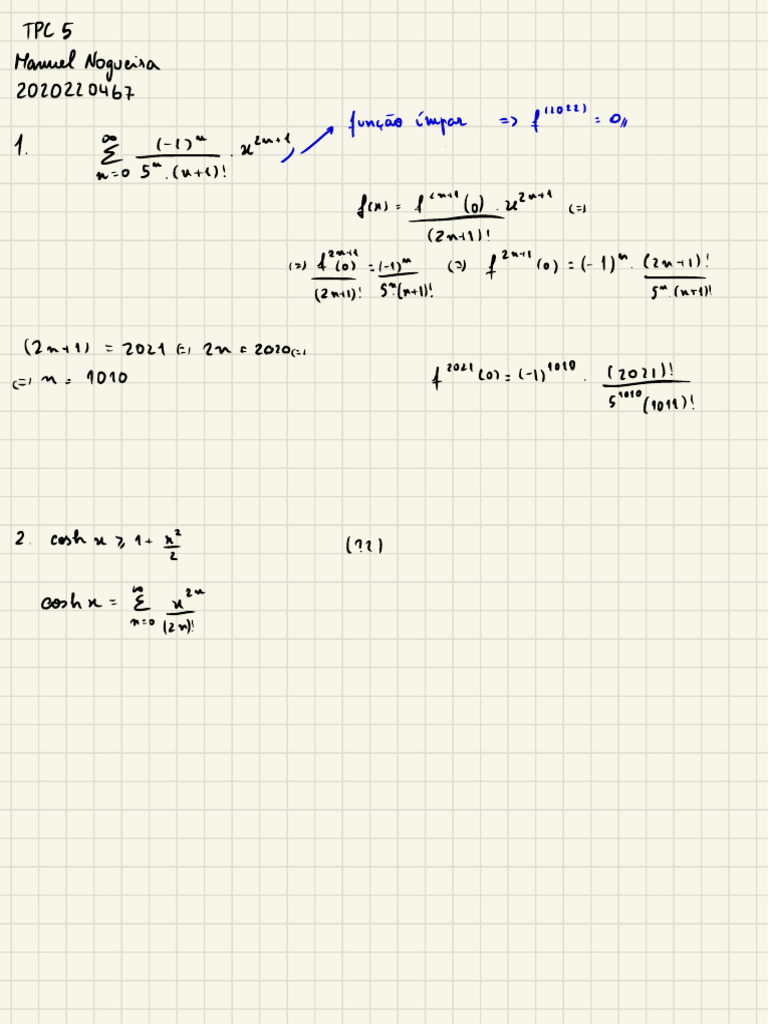 TPC 5
Manuel Nogueira
2020220467
1. ∞ Σ n=0 (-1)^n / 5^n . (n+1)! . x^{2n+1} , → função ímpar => f^{(2022)} = 0,,
f(x) = f^{2n+1}(0) / (2n+1)! . x^{2n+1} (=)
(=) f^{2n+1}(0) / (2n+1)! = (-1)^n / 5^n.(n+1)! (=) f^{2n+1}(0) = (-1)^n . (2n+1)! / 5^n.(n+1)!
(2n+1) = 2021 (=) 2n = 2020 (=)
(=) n = 1010
f^{2021}(0) = (-1)^{1010} . (2021)! / 5^{1010} (1011)!
2. cosh x ≥ 1 + x^2 / 2 (??)
cosh x = ∞ Σ n=0 x^{2n} / (2n)!